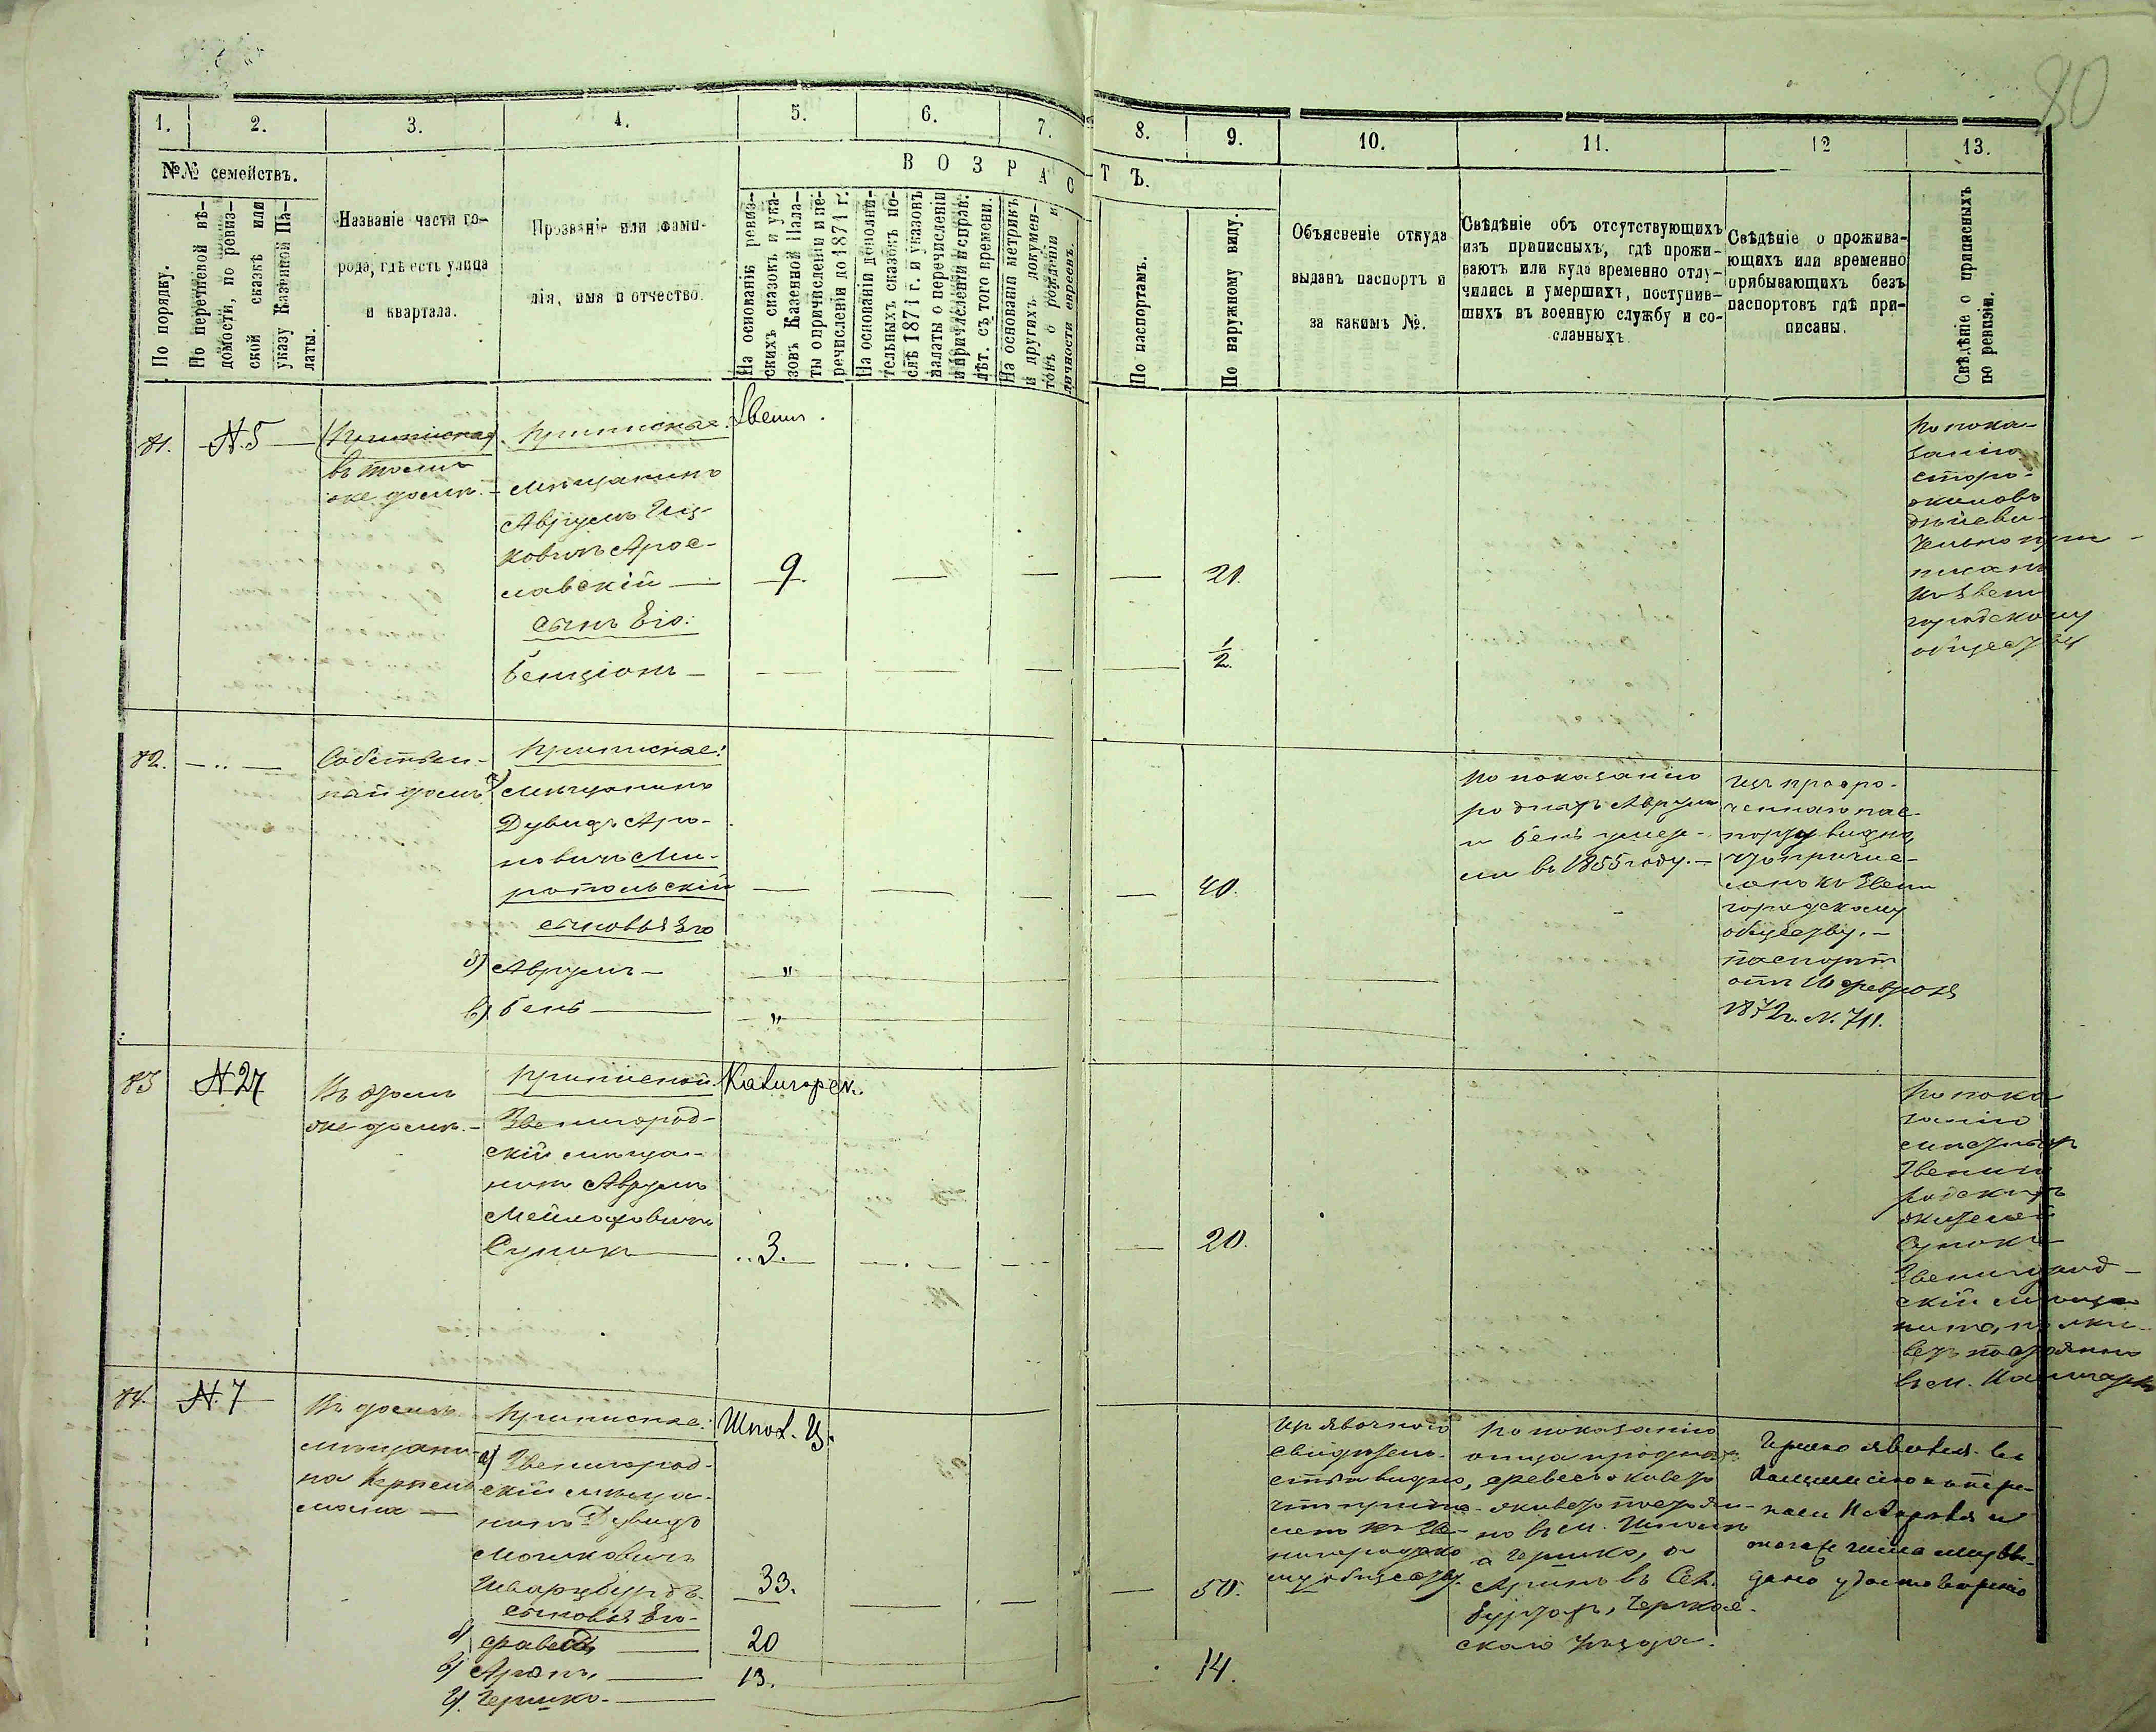 80
1.
2.
3.
4.
5.
6.
7.
8.
9.
10.
11.
12
13.
№№ семействъ.
По порядку.
По перечневой вѣ-
домости, по ревиз-
ской сказкѣ или
указу Казенной Па-
латы.
Названіе части го-
рода, гдѣ есть улица
и квартала.
Прозваніе или фами-
лія, имя и отчество.
ВОЗРАСТЪ.
На основаніи ревиз-
скихъ сказокъ и ука-
зовъ Казенной Пала-
ты о причисленіи и пе-
речисленіи до 1871 г.
На основаніи дополни-
тельныхъ сказокъ по-
слѣ 1871 г. и указовъ
палаты о перечисленіи
и причисленіи и справ.
лѣт. съ того времени.
На основаніи метрикъ
и другихъ докумен-
товъ о рожденіи и
личности евреевъ.
По паспортамъ.
По наружному виду.
Объясненіе откуда
выданъ паспортъ и
за какимъ №.
Свѣдѣніе объ отсутствующихъ
изъ приписныхъ, гдѣ прожи-
ваютъ или куда временно отлу-
чились и умершихъ, поступив-
шихъ въ военную службу и со-
сланныхъ
Свѣдѣніе о прожива-
ющихъ или временно
прибывающихъ безъ
паспортовъ гдѣ при-
писаны.
Свѣдѣніе о приписныхъ
по ревизіи.
81.
N. 5
въ томъ
же домѣ.
Приписные.
Звениг.
Мѣщанинъ
Аврумъ Иц-
ковичъ Ярос-
лавскій
9.
21.
сынъ Его:
Бенціонъ
1/2.
По пока-
занію
старо-
жиловъ
дѣйстви-
тельно при-
писанъ
къ Звени
городскому
обществу
82.
Собствен-
ный домъ
Приписные:
а) Мѣщанинъ
Дувидъ Аро-
новичъ Ми-
ропольскій
40.
сыновья Его
б) Аврумъ
"
в) Бень
"
По показанію
роднихъ Аврумъ
и Бень умер-
ли въ 1855 году.
Изъ просро-
ченнаго пас-
порту видно
что причис-
ленъ къ Звени
городскому
обществу.
паспортъ
отъ 16 февраля
1872 г. N. 711.
83
N 27
Въ томъ
же домѣ.
Приписной.
Катеринопол.
Звенигород-
скій мѣща-
нинъ Аврумъ
Мейлоховичъ
Сумик
3.
20.
По пока
занію
мѣстныхъ
Звениго
родскихъ
жителей
Звенигород-
скій мѣща
нинъ, прожи-
ветъ постоянно
84.
N. 7
Въ домѣ
мѣщани-
на
Приписные:
Шпол. Ц.
а) Звенигород-
скій мѣща-
нинъ Дувидъ
Мошковичъ
Шварцбурдъ
33.
50.
сыновья Его
б)
20
в) Аронъ,
13.
г) Гершко
14.
Изъ явочнаго
свидѣтель-
ства видно,
что причис-
ленъ къ Зве-
нигородско
му обществу.
По показанію
отца и роднихъ
живетъ постоян-
но въ м. Шполѣ
а Гершко, а
Аронъ въ Сел.
Буртахъ, Черкас-
скаго Уѣзда.
Гершко явился въ
дано удостовѣреніе